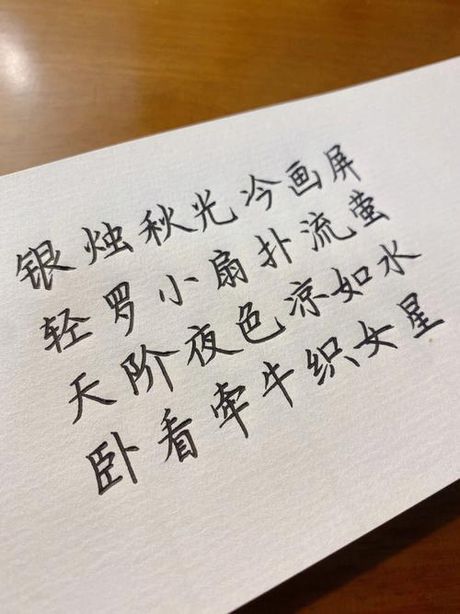 银烛秋光冷画屏
轻罗小扇扑流萤
天阶夜色凉如水
卧看牵牛织女星